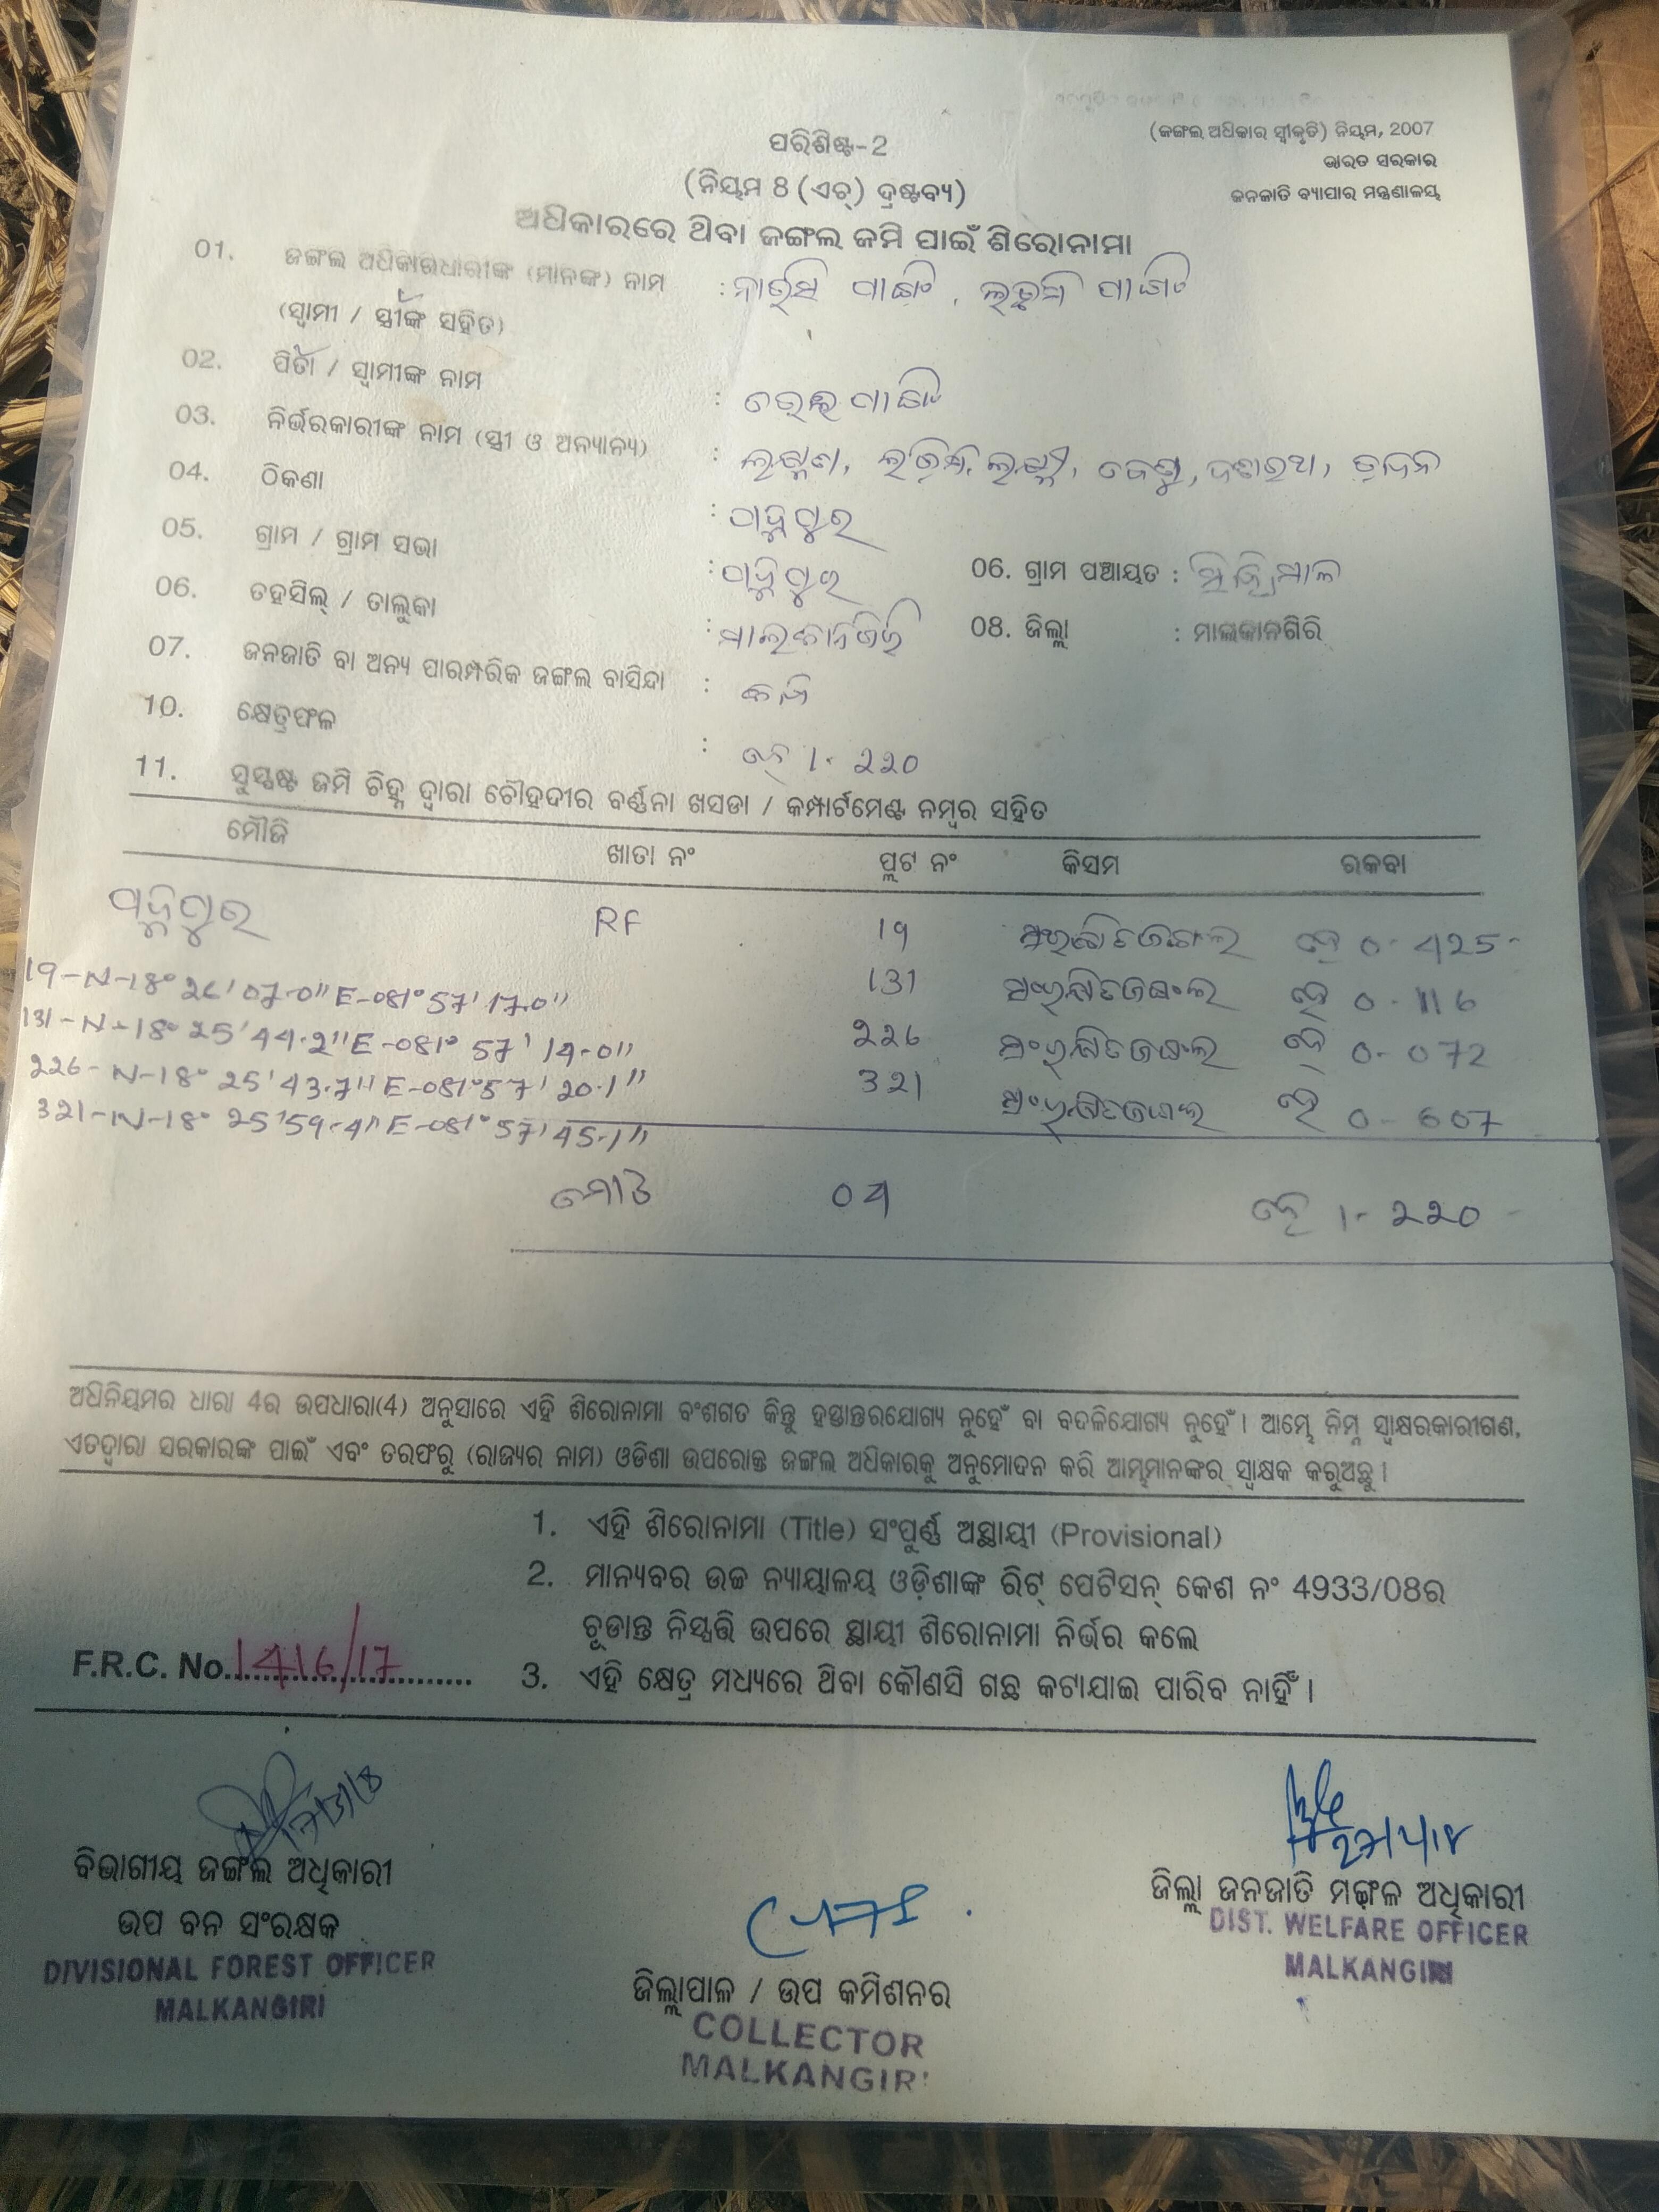 (ଜଙ୍ଗଲ ଅଧିକାର ସ୍ୱୀକୃତି) ନିୟମ, 2007
ଭାରତ ସରକାର
ଜନଜାତି ବ୍ୟାପାର ମନ୍ତ୍ରଣାଳୟ
ପରିଶିଷ୍ଟ-2
(ନିୟମ 8 (ଏଚ୍) ଦ୍ରଷ୍ଟବ୍ୟ)
ଅଧିକାରରେ ଥିବା ଜଙ୍ଗଲ ଜମି ପାଇଁ ଶିରୋନାମା
01. ଜଙ୍ଗଲ ଅଧିକାରଧାରୀଙ୍କ (ମାନଙ୍କ) ନାମ :
(ସ୍ୱାମୀ / ସ୍ତ୍ରୀଙ୍କ ସହିତ)
02. ପିତା / ସ୍ୱାମୀଙ୍କ ନାମ :
03. ନିର୍ଭରକାରୀଙ୍କ ନାମ (ସ୍ତ୍ରୀ ଓ ଅନ୍ୟାନ୍ୟ) : ଲକ୍ଷ୍ମଣ, ଲକ୍ଷ୍ମୀ, ଦଶରଥ, ଚନ୍ଦନ
04. ଠିକଣା : ପଦ୍ମପୁର
05. ଗ୍ରାମ / ଗ୍ରାମ ସଭା : ପଦ୍ମପୁର 06. ଗ୍ରାମ ପଞ୍ଚାୟତ :
06. ତହସିଲ୍ / ତାଲୁକା : ମାଲକାନଗିରି 08. ଜିଲ୍ଲା : ମାଲକାନଗିରି
07. ଜନଜାତି ବା ଅନ୍ୟ ପାରମ୍ପରିକ ଜଙ୍ଗଲ ବାସିନ୍ଦା :
10. କ୍ଷେତ୍ରଫଳ : ହେ 1.220
11. ସୁସ୍ପଷ୍ଟ ଜମି ଚିହ୍ନ ଦ୍ୱାରା ଚୌହଦୀର ବର୍ଣ୍ଣନା ଖସଡା / କମ୍ପାର୍ଟମେଣ୍ଟ ନମ୍ବର ସହିତ
ମୌଜି ଖାତା ନଂ ପ୍ଲଟ ନଂ କିସମ ରକବା
ପଦ୍ମପୁର RF 19 ସଂରକ୍ଷିତ ଜଙ୍ଗଲ ହେ 0.425
19-N-18° 26' 07.0" E-081° 57' 17.0" 131 ସଂରକ୍ଷିତ ଜଙ୍ଗଲ ହେ 0.116
131-N-18° 25' 44.2" E-081° 57' 14.0" 226 ସଂରକ୍ଷିତ ଜଙ୍ଗଲ ହେ 0.072
226-N-18° 25' 43.7" E-081° 57' 20.1" 321 ସଂରକ୍ଷିତ ଜଙ୍ଗଲ ହେ 0.607
321-N-18° 25' 59.4" E-081° 57' 45.1"
ମୋଟ 04 ହେ 1.220
ଅଧିନିୟମର ଧାରା 4ର ଉପଧାରା(4) ଅନୁସାରେ ଏହି ଶିରୋନାମା ବଂଶଗତ କିନ୍ତୁ ହସ୍ତାନ୍ତରଯୋଗ୍ୟ ନୁହେଁ ବା ବଦଳିଯୋଗ୍ୟ ନୁହେଁ । ଆମ୍ଭେ ନିମ୍ନ ସ୍ୱାକ୍ଷରକାରୀଗଣ,
ଏତଦ୍ୱାରା ସରକାରଙ୍କ ପାଇଁ ଏବଂ ତରଫରୁ (ରାଜ୍ୟର ନାମ) ଓଡିଶା ଉପରୋକ୍ତ ଜଙ୍ଗଲ ଅଧିକାରକୁ ଅନୁମୋଦନ କରି ଆମ୍ଭମାନଙ୍କର ସ୍ୱାକ୍ଷକ କରୁଅଛୁ ।
1. ଏହି ଶିରୋନାମା (Title) ସଂପୁର୍ଣ୍ଣ ଅସ୍ଥାୟୀ (Provisional)
2. ମାନ୍ୟବର ଉଚ୍ଚ ନ୍ୟାୟାଳୟ ଓଡ଼ିଶାଙ୍କ ରିଟ୍ ପେଟିସନ୍ କେଶ ନଂ 4933/08ର
ଚୂଡାନ୍ତ ନିସ୍ପତ୍ତି ଉପରେ ସ୍ଥାୟୀ ଶିରୋନାମା ନିର୍ଭର କଲେ
F.R.C. No. 1416/17
3. ଏହି କ୍ଷେତ୍ର ମଧ୍ୟରେ ଥିବା କୌଣସି ଗଛ କଟାଯାଇ ପାରିବ ନାହିଁ ।
ବିଭାଗୀୟ ଜଙ୍ଗଲ ଅଧିକାରୀ
ଉପ ବନ ସଂରକ୍ଷକ
DIVISIONAL FOREST OFFICER
MALKANGIRI
ଜିଲ୍ଲାପାଳ / ଉପ କମିଶନର
COLLECTOR
MALKANGIRI
ଜିଲ୍ଲା ଜନଜାତି ମଙ୍ଗଳ ଅଧିକାରୀ
DIST. WELFARE OFFICER
MALKANGIRI